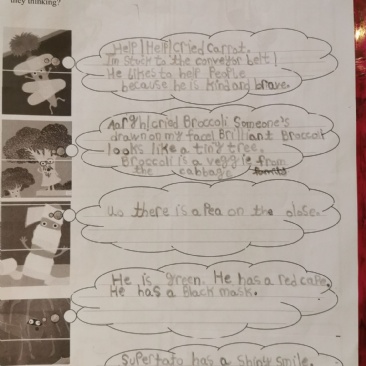 they thinking?
Help! Help! Cried Carrot.
I'm Stuck to the conveyor belt!
He likes to help People
because he is kind and brave.
Aargh! cried Broccoli Someone's
drawn on my face! Brilliant Broccoli
looks like a tiny tree.
Broccoli is a veggie from
the cabbage
there is a Pea on the
He is green. He has a red cape.
He has a Black mask.
Supertato has a Shiny Smile.